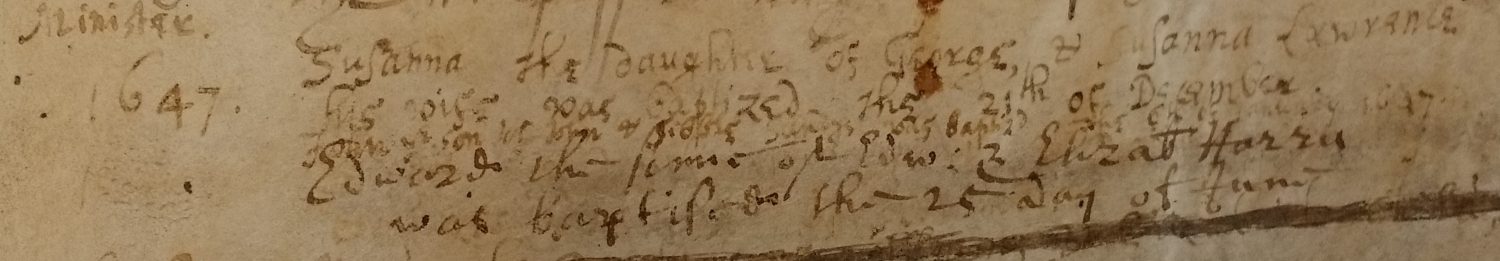 Minister.
Susanna the daughter of George, & Susanna Lawrence
1647. his wife was baptized the 21th of December
John ye son of John & was baptizd 1647
Edward the sonne of Edw: & Elizab Harris
was baptised the 25 day of June